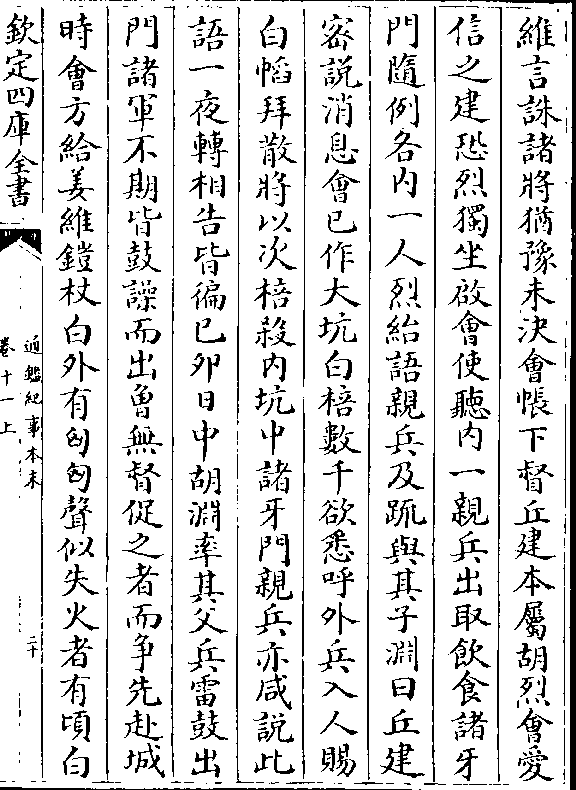 維言誅諸將猶豫未決會帳下督丘建本屬胡烈會愛
信之建恐烈獨坐啟會使聽内一親兵出取飲食諸牙
門隨例各内一人烈紿語親兵及疏與其子淵曰丘建
宻説消息會已作大坑白棓數千欲悉呼外兵入人賜
白幍拜散將以次棓殺内坑中諸牙門親兵亦咸説此
語一夜轉相告皆徧已卯日中胡淵率其父兵雷鼓出
門諸軍不期皆鼓譟而出曾無督促之者而爭先赴城
時會方給姜維鎧杖白外有匈匈聲似失火者有頃白
欽定四庫全書
通鑑紀事本末
卷十一上
二十